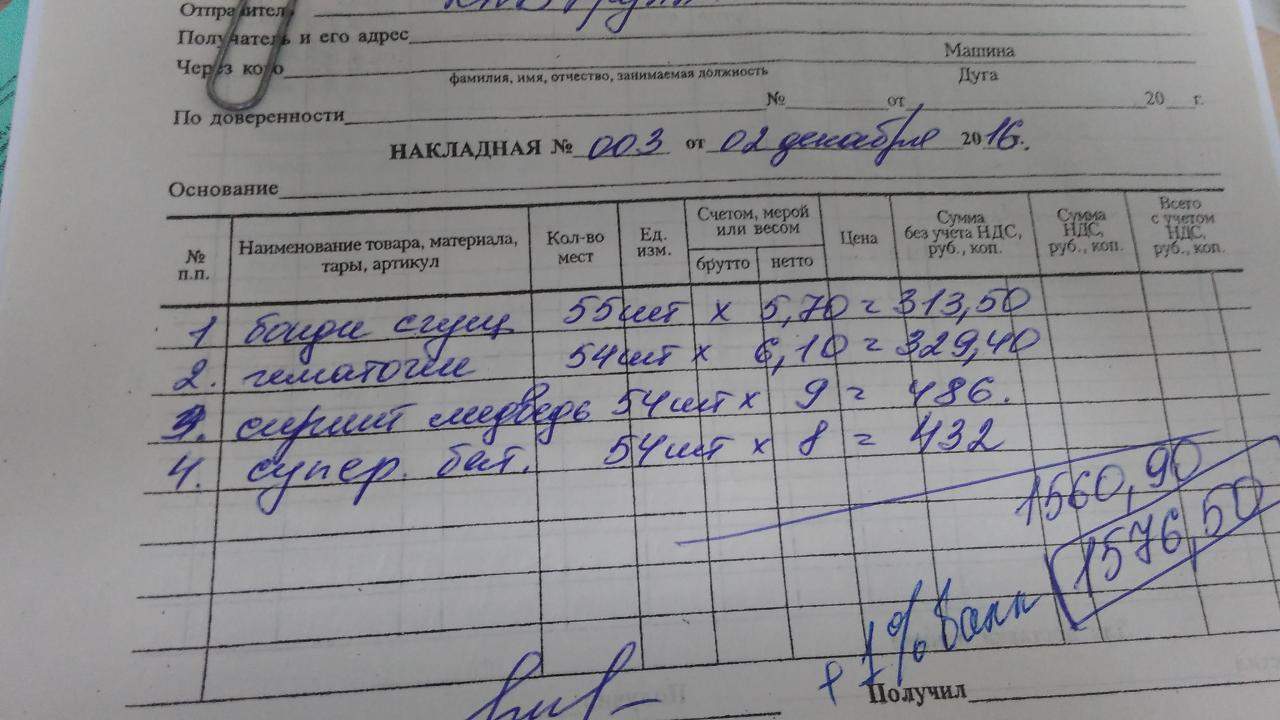 Отправитель
Получатель и его адрес
Машина
Через кого
фамилия, имя, отчество, занимаемая должность
Дуга
По доверенности № от 20 г.
НАКЛАДНАЯ № 003 от 02 декабря 2016.
Основание
№ п.п.
Наименование товара, материала, тары, артикул
Кол-во мест
Ед. изм.
Счетом, мерой или весом
брутто
нетто
Цена
Сумма без учета НДС, руб., коп.
Сумма НДС, руб., коп.
Всего с учетом НДС, руб., коп.
1 бонди сгущ 55шт х 5,70 = 313,50
2. гематоген 54шт х 6,10 = 329,40
3. медведь 54шт х 9 = 486.
4. супер. бат. 54шт х 8 = 432
1560,90
1576,50
+ 1% банк
Получил